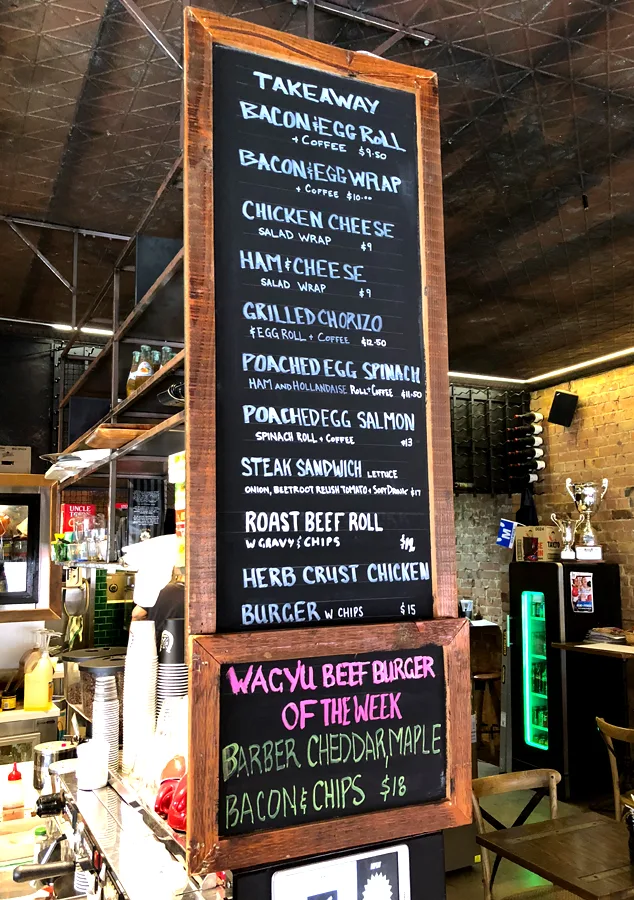 TAKEAWAY
BACON & EGG ROLL
+ COFFEE $9.50
BACON & EGG WRAP
+ COFFEE $10.00
CHICKEN CHEESE
SALAD WRAP $9
HAM & CHEESE
SALAD WRAP $9
GRILLED CHORIZO
& EGG ROLL + COFFEE $12.50
POACHED EGG SPINACH
HAM AND HOLLANDAISE ROLL + COFFEE $11.50
POACHED EGG SALMON
SPINACH ROLL + COFFEE $13
STEAK SANDWICH LETTUCE
ONION, BEETROOT RELISH TOMATO + SOFT DRINK $17
ROAST BEEF ROLL
W GRAVY & CHIPS
HERB CRUST CHICKEN
BURGER W CHIPS $15
WAGYU BEEF BURGER
OF THE WEEK
BARBER CHEDDAR, MAPLE
BACON & CHIPS $18
UNCLE